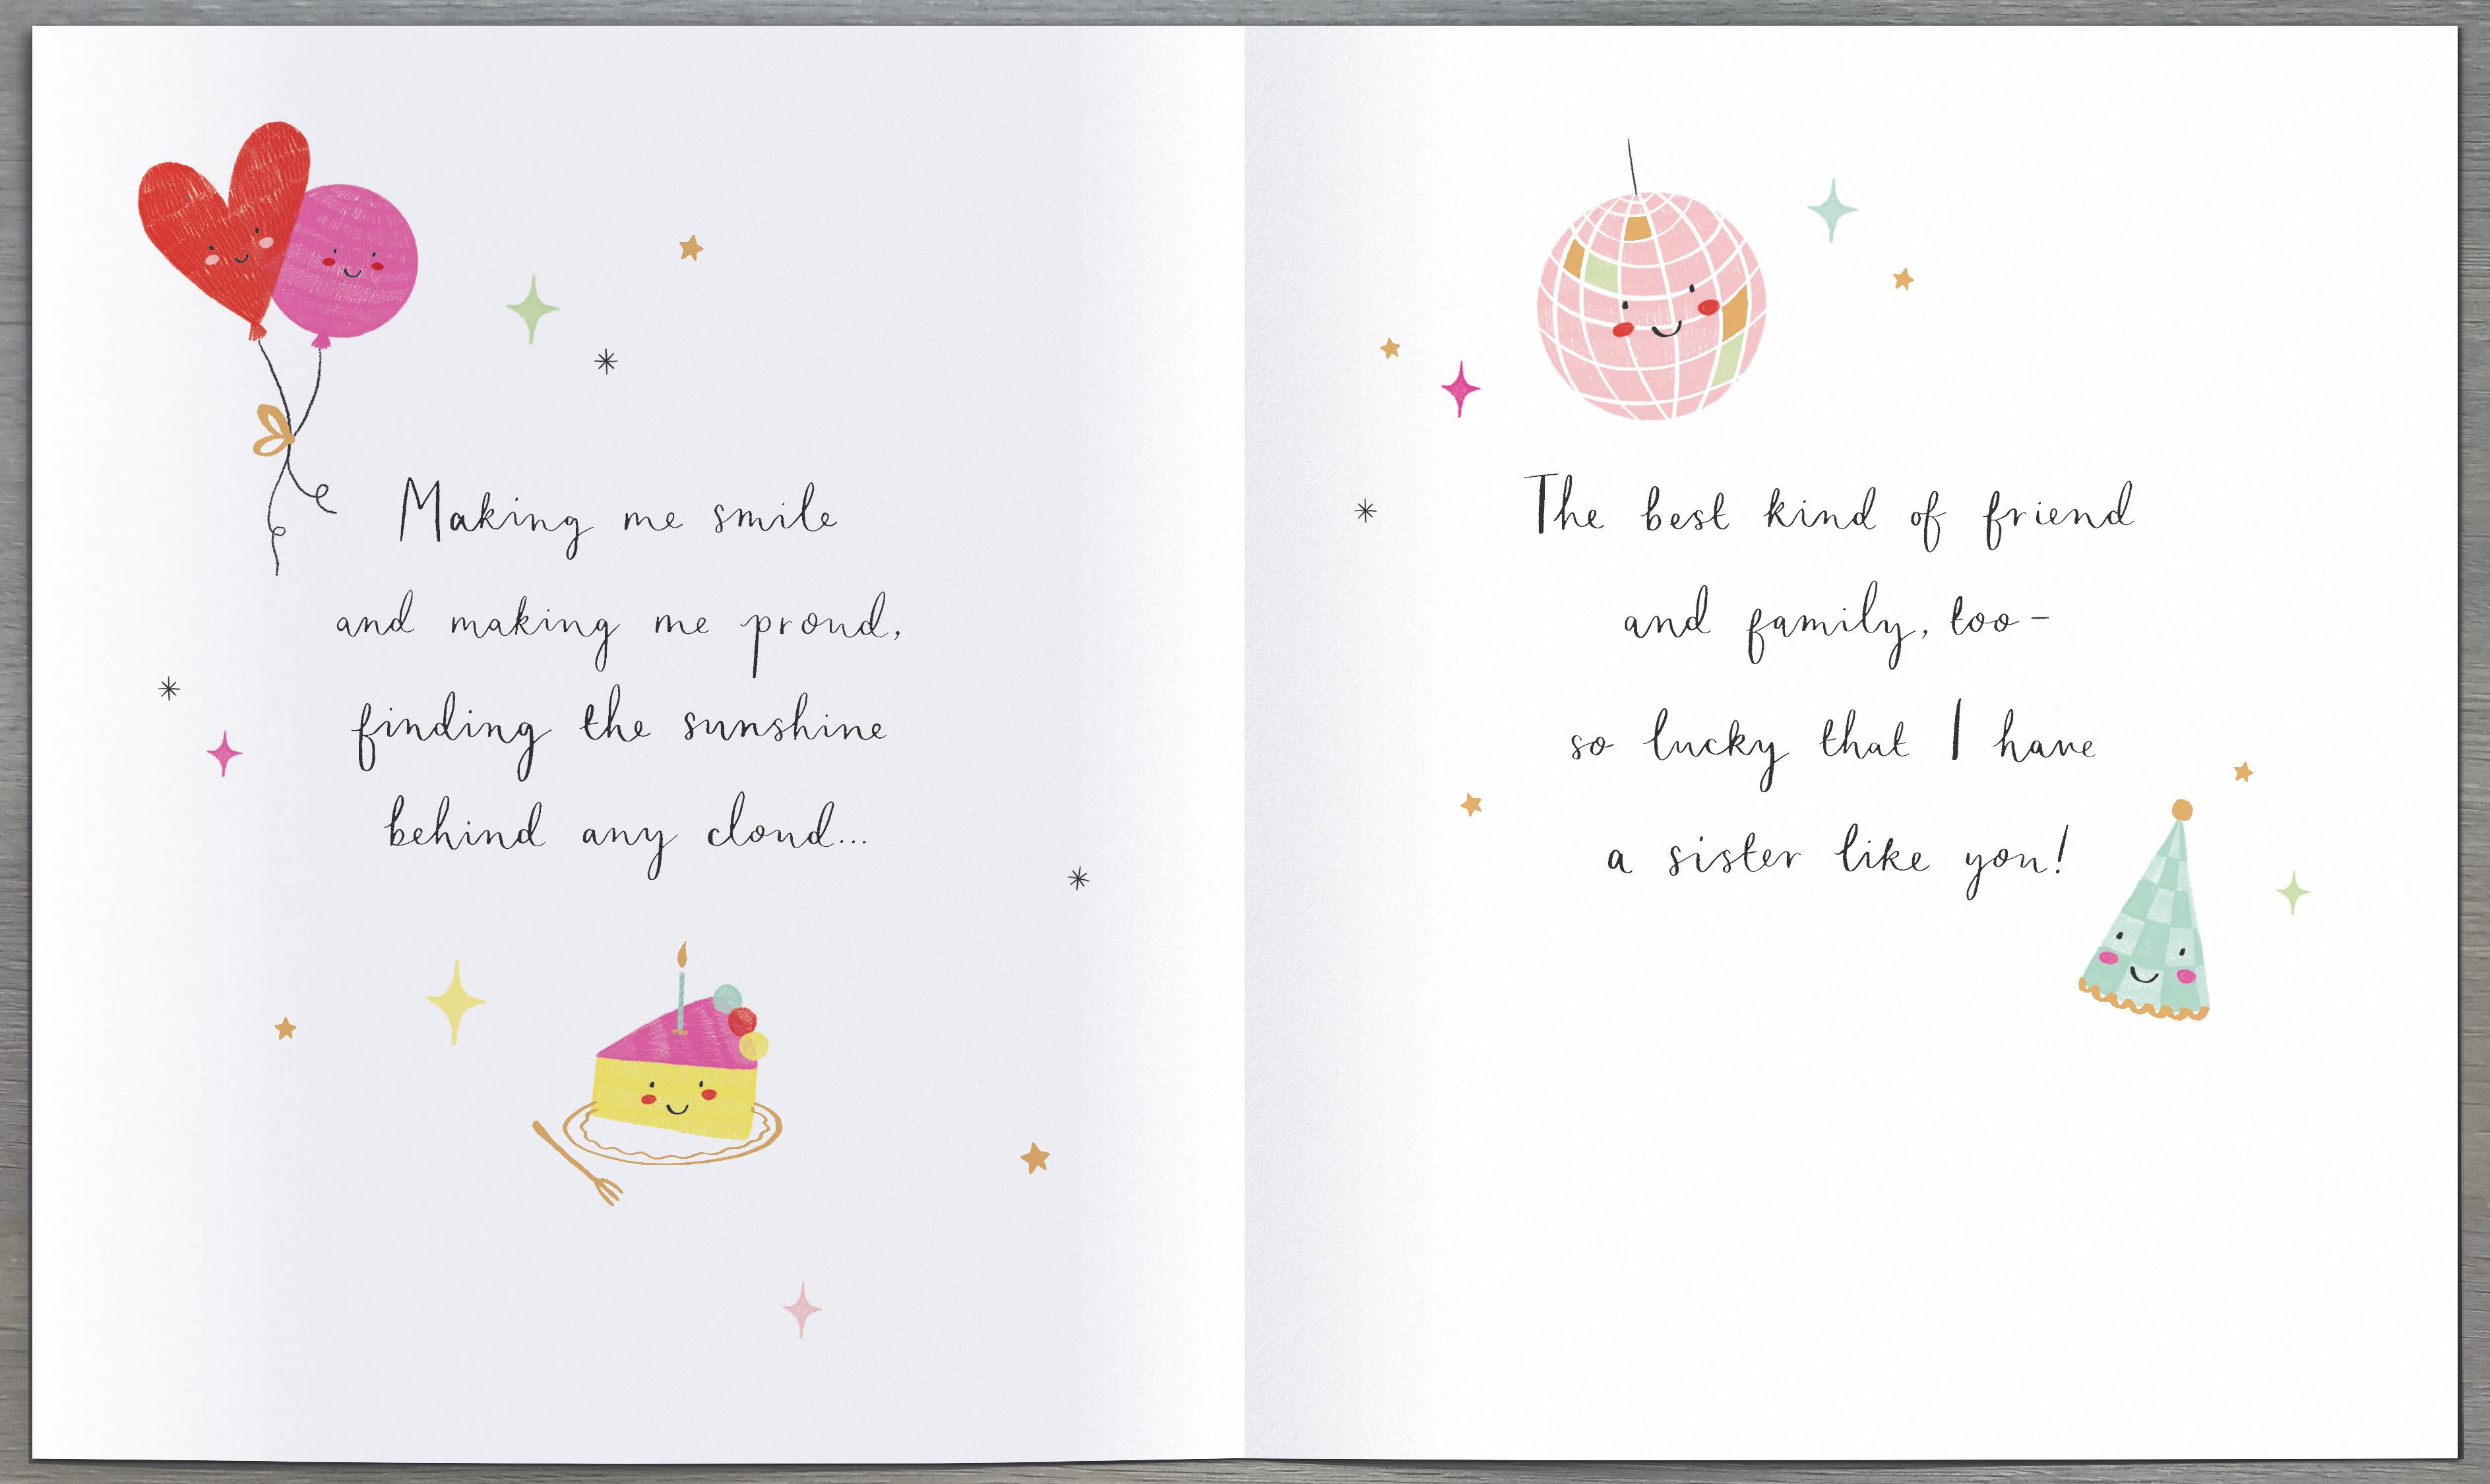 Making me smile
and making me proud,
finding the sunshine
behind any cloud...
The best kind of friend
and family, too-
so lucky that I have
a sister like you!